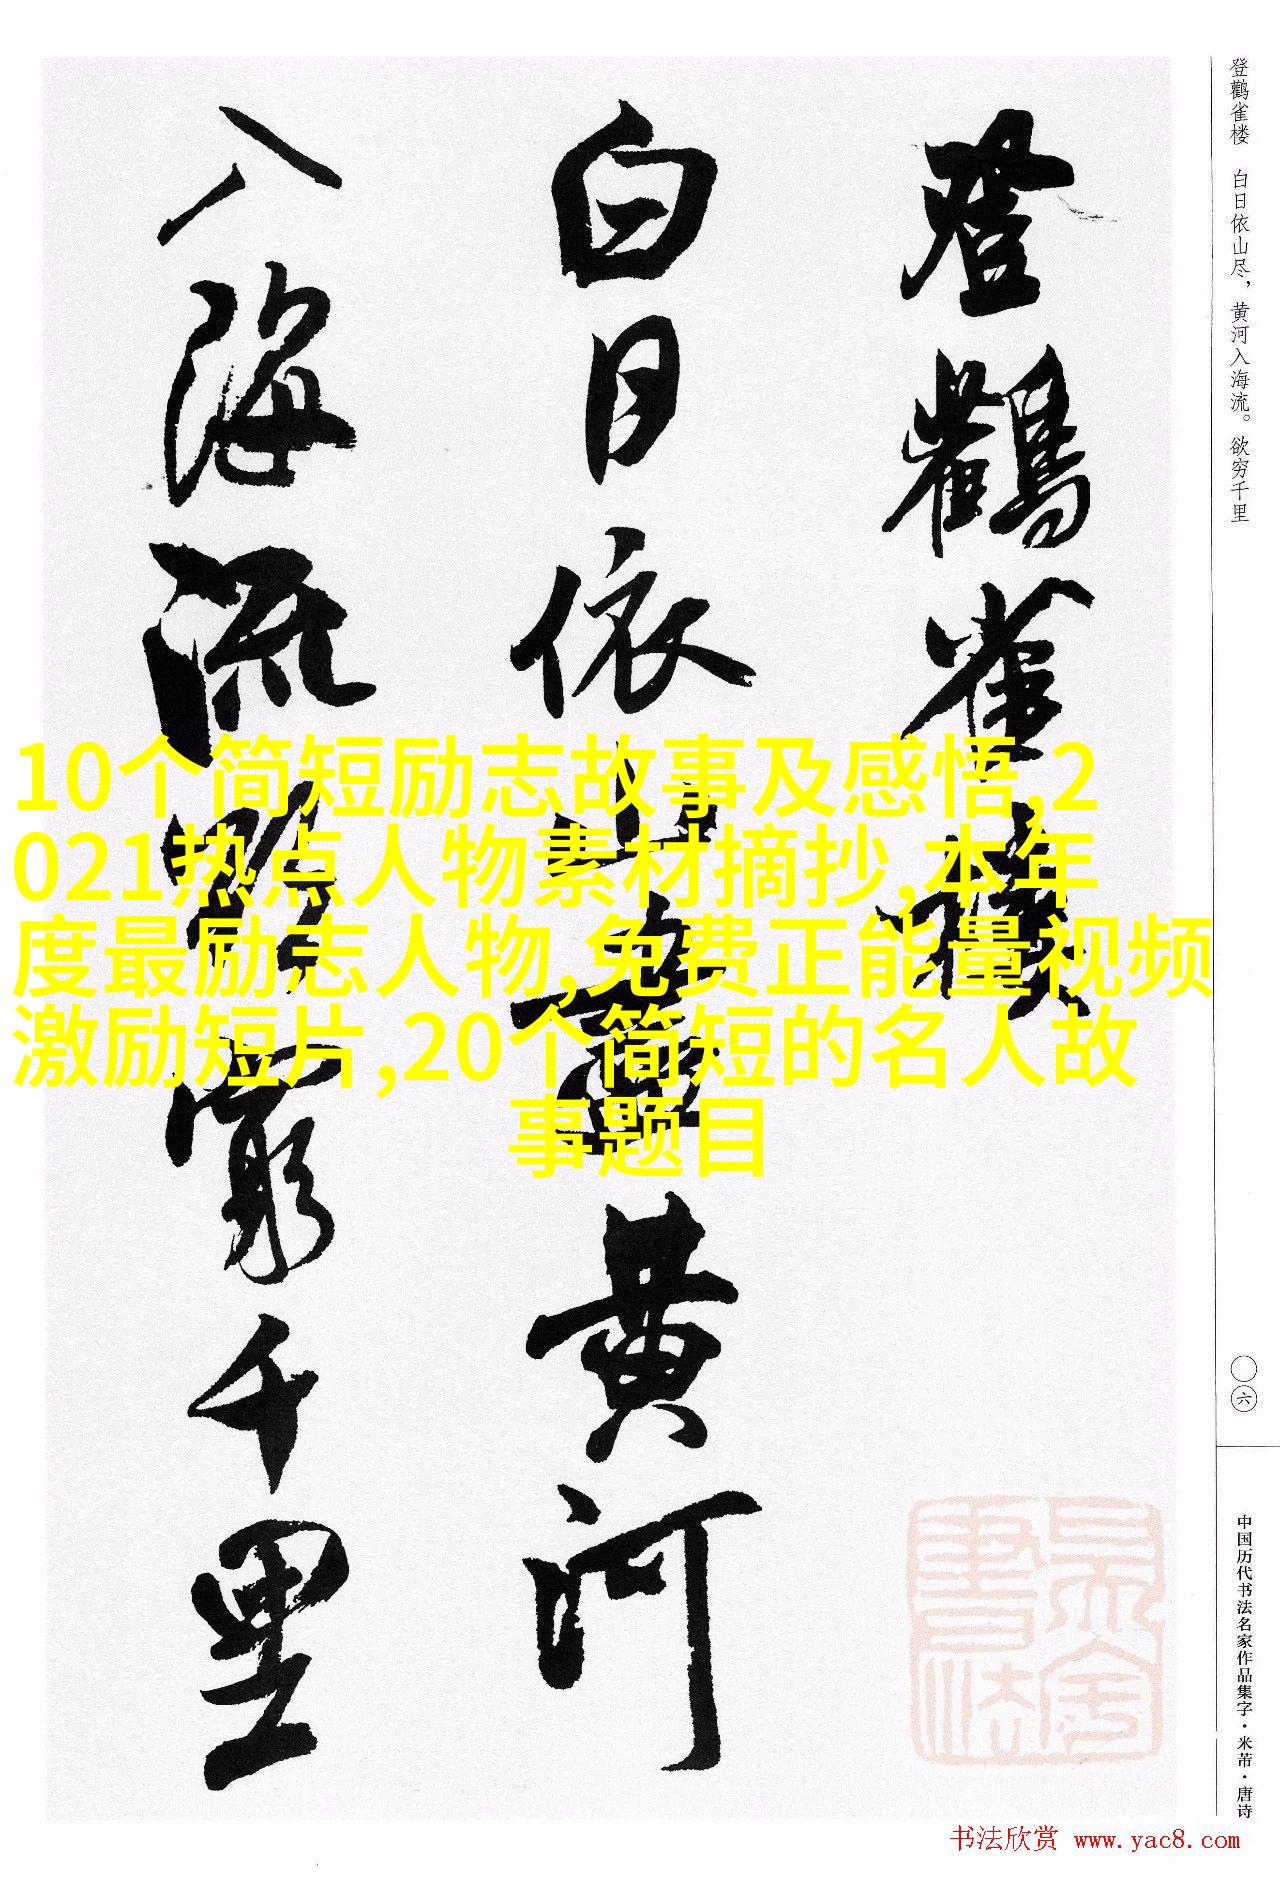 登鹳雀楼 白日依山尽，黄河入海流。欲穷千里
登鸛雀樓
白日依山盡黄河
入海流欲窮千里
10个简短励志故事及感悟,2
021热点人物素材摘抄,本年
度最励志人物,免费正能量视频
激励短片,20个简短的名人故
事题目
〇六
中国历代书法名家作品集字·米芾·唐诗
书法欣赏 www.yac8.com